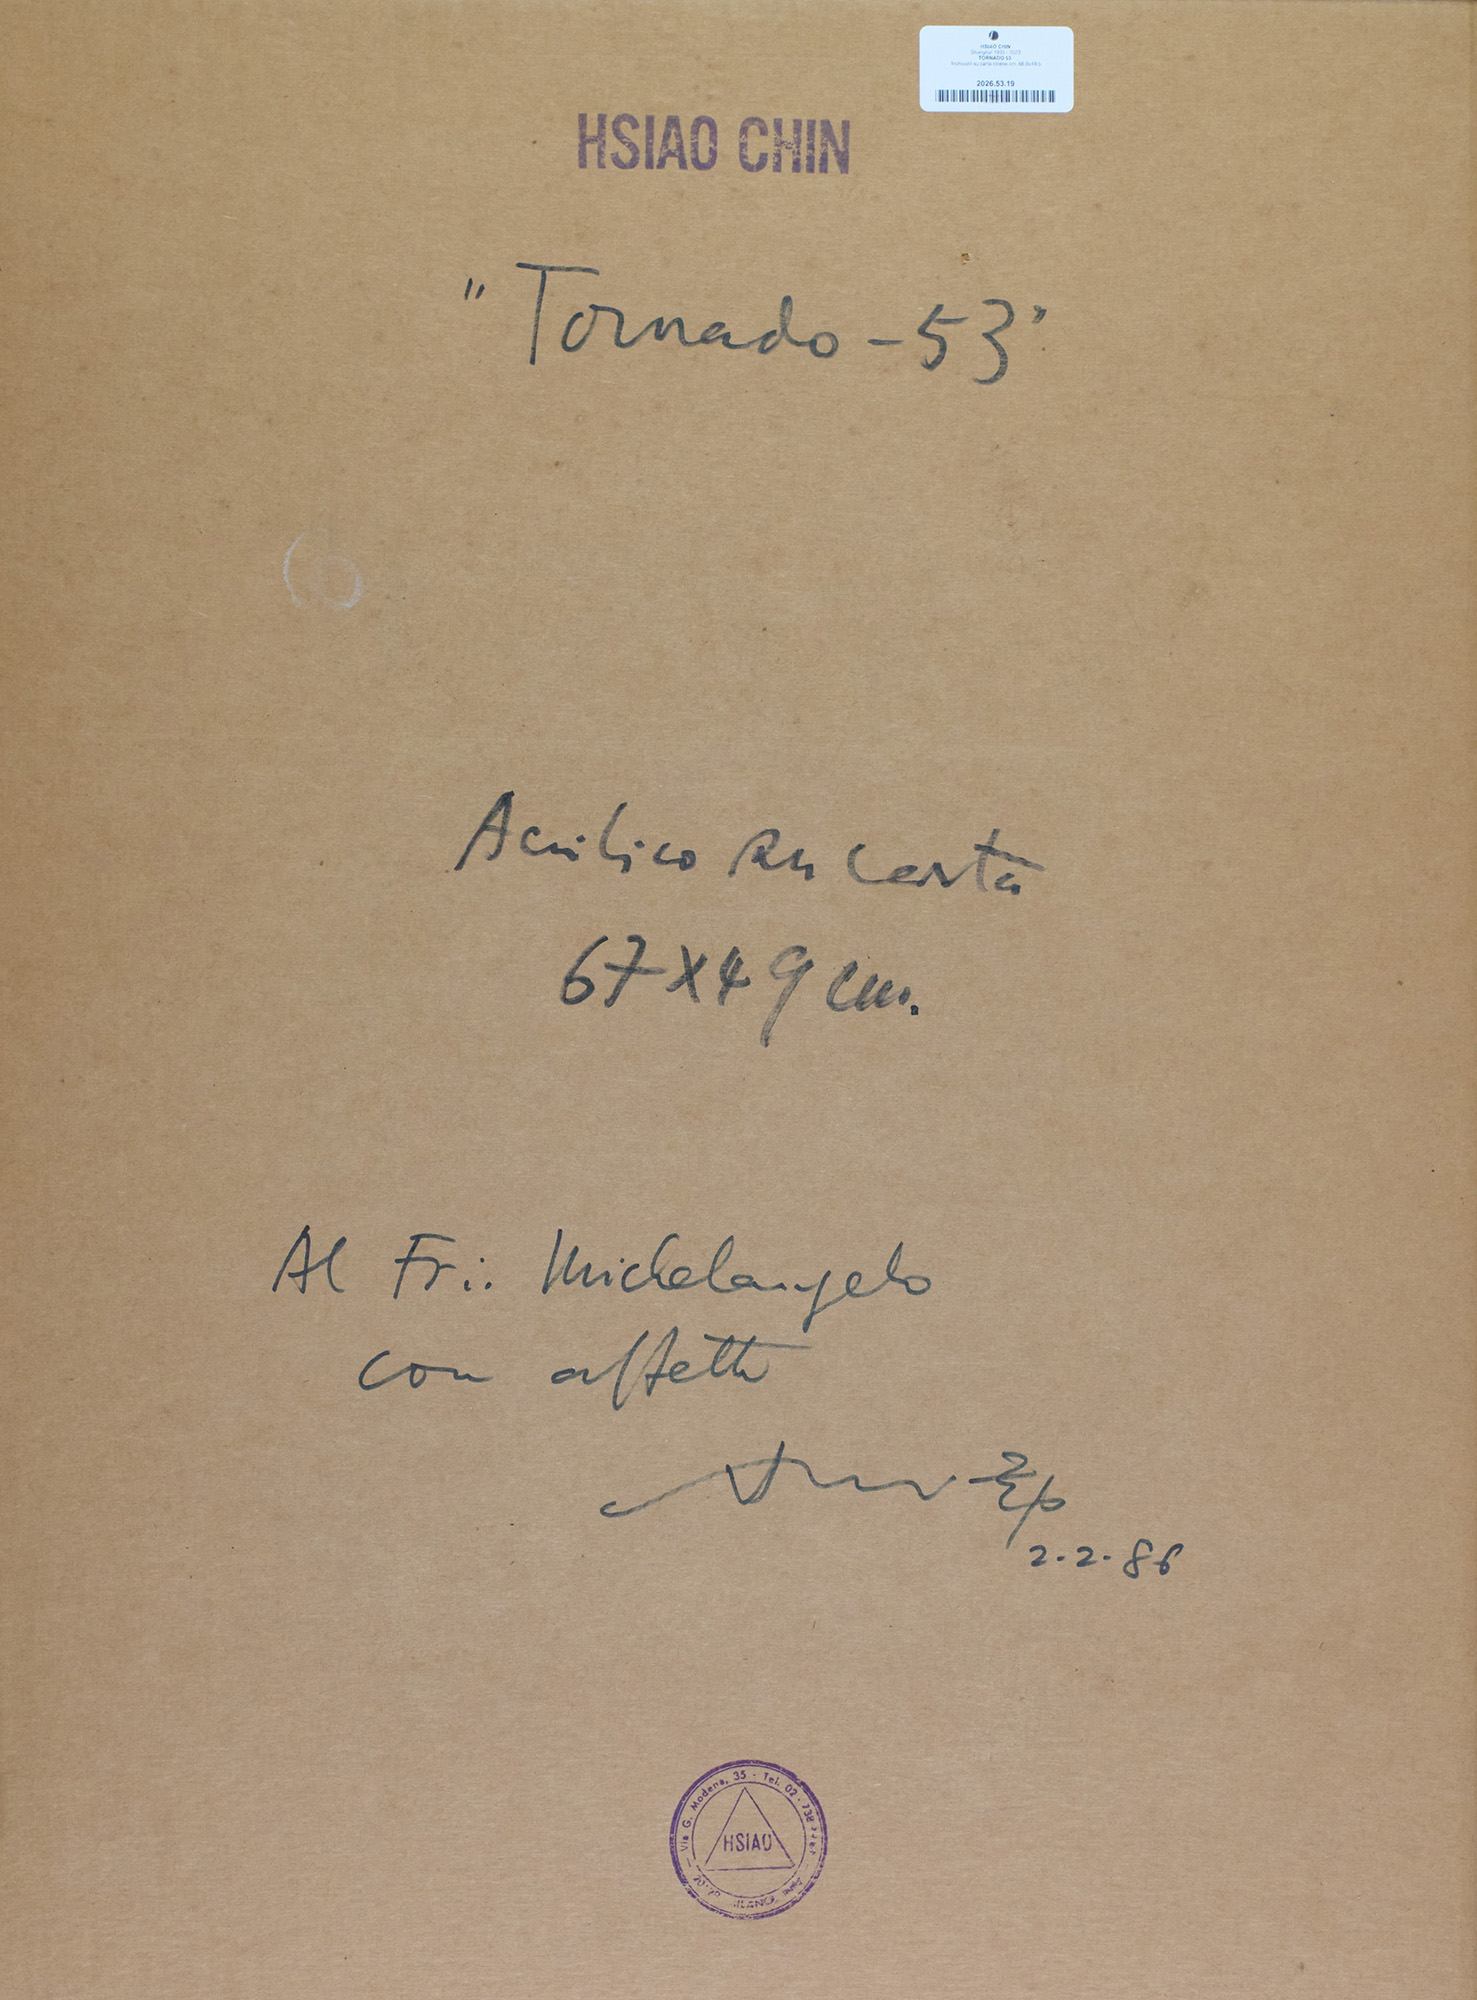 HSIAO CHIN
TORNADO 53
2026.53.19
HSIAO CHIN
"Tornado-53"
Acrilico su carta
67x49 cm.
Al Fr.: Michelangelo
con affetto
2.2.86
Via G. Modena, 35 - Tel. 02 - 738
HSIAO
MILANO